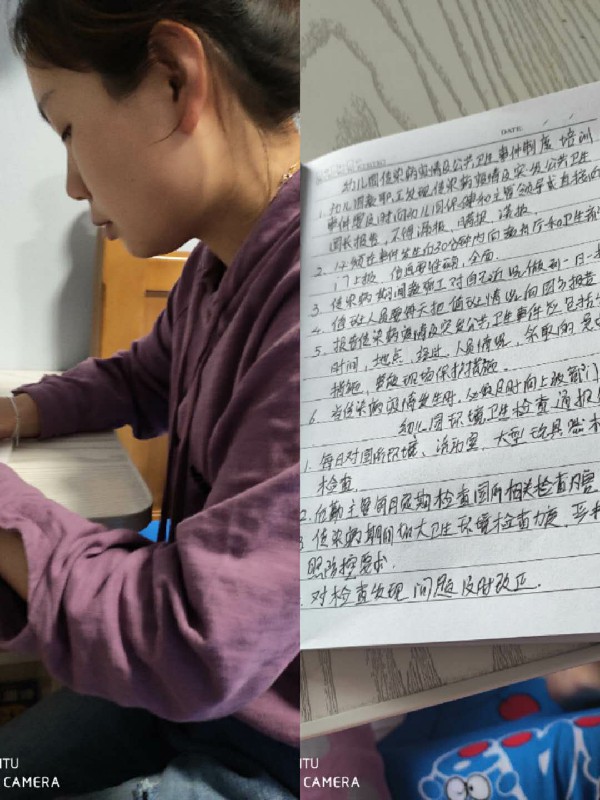 DATE:
幼儿园传染病疫情及公共卫生事件制度 培训
1. 幼儿园教职工发现传染病疫情及突发公共卫生
事件要及时向幼儿园保健和主要领导或直接向
园长报告，不得漏报、瞒报、谎报
2. 事件发生的30分钟内向教育厅和卫生
门上报，信息要准确，全面.
3. 传染病期间教职工对 情况做到一日一
4. 值班人员要每天把值班情况向园务报告
5. 报告传染病疫情及突发公共卫生事件应包括
时间，地点，经过，人员情况，采取的
措施，事故现场保护措施.
6 当传染病疫情发生时，应做及时向上级部门
幼儿园环境卫生检查通报
1. 每日对园所环境、活动室、大型玩具器
检查.
2. 后勤主管每月定期检查园所相关检查内容
3 传染病期间加大卫生环境检查力度，严
照防控要求.
对检查发现问题及时改正.
NTU
CAMERA
NTU
CAMERA